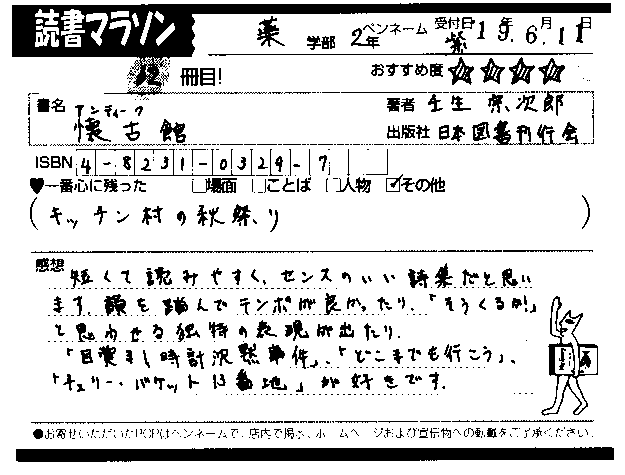 読書マラソン
薬 学部 2年 ペンネーム 紫 受付日 19年6月11日
12冊目! おすすめ度 ★★★★
書名 アンティーク 懐古館 著者 壬生宗次郎
出版社 日本図書刊行会
ISBN 4-8231-0329-7
♥一番心に残った □場面 □ことば □人物 ☑その他
(キッチン村の秋祭り)
感想
短くて読みやすく、センスのいい詩集だと思い
ます。韻を踏んでテンポが良かったり、「そうくるか!」
と思わせる独特の表現が出たり。
「目覚まし時計沈黙事件」、「どこまでも行こう」、
「チェリー・バケット13番地」が好きです。
●お寄せいただいたPOPはペンネームで、店内で掲示、ホームページおよび宣伝物への転載をご了承ください。